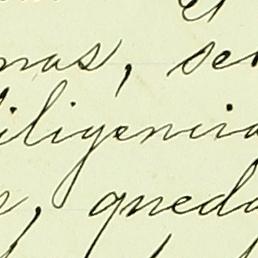 El
nas, se
iligencia
, queda